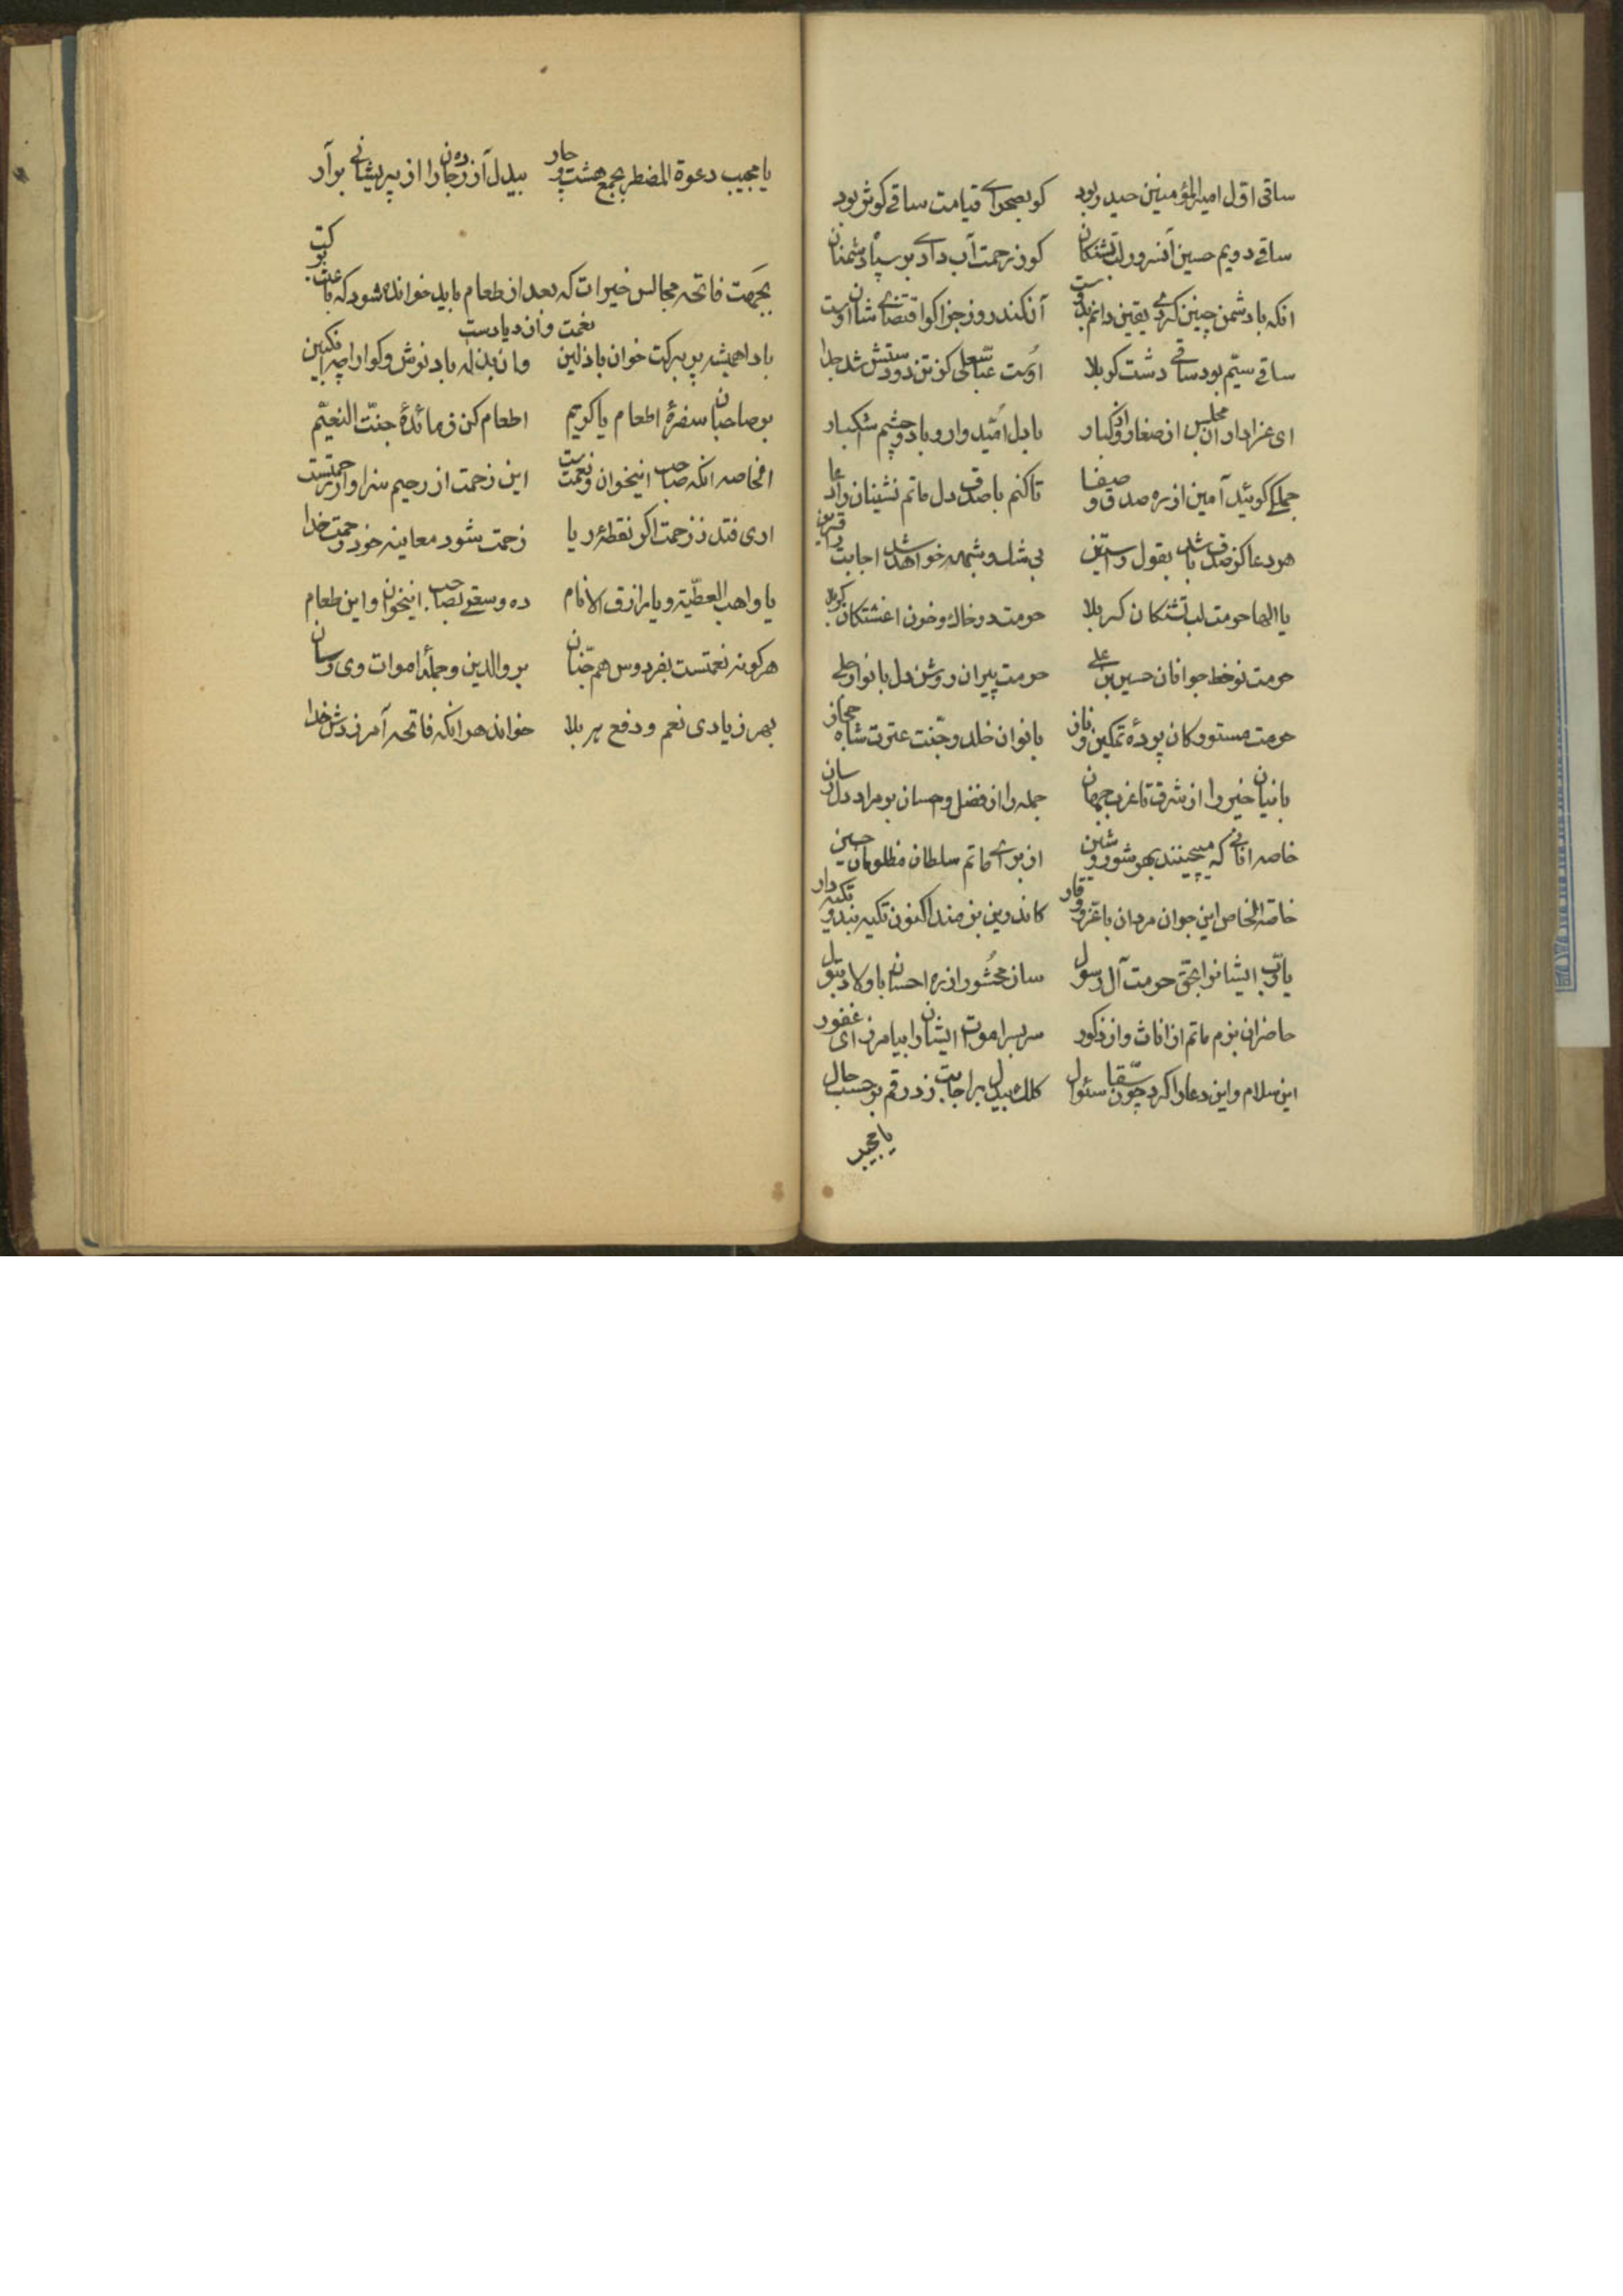 ساقی اوّل امیرالمؤمنین حیدر بود کو بصحرای قیامت ساقی کوثر بود
ساقی دویم حسین آنسرور لب تشنکان کو ز رحمت آب دادی بر سپاه دشمنان
انکه با دشمن چنین کردی یقین دانم بدوست آن کند روز جزا کو اقتضای شان اوست
ساقی سیّم بود ساقی دشت کربلا اوست عبّاس علی کز تن دو دستش شد جدا
ای عزاداران مجلس از صغار و از کبار با دل امّیدوار و با دو چشم اشکبار
جملکی کوئید آمین از ره صدق و صفا تا کنم با صدق دل ماتم نشینان را دعا
هر دعا کز صدق باشد بقول راستین بی شک و شبهه خواهد شد اجابت را قرین
یا الها حرمت لب تشنکان کربلا حرمت در خاک و خون اغشتکان کربلا
حرمت نوخط جوانان حسین بن علی حرمت پیران روشن دل بانوار جلی
حرمت مستورکان پردهٔ تمکین و ناز بانوان خلد و جنّت عترت شاه حجاز
بانیان خیر را از شرق تا غرب جهان جمله را از فضل و حسان بر مراد دل رسان
خاصه انانی که میچینند بهر شور و شین از برای ماتم سلطان مظلومان حسین
خاصّه الخاص این جوان مردان با عزّ و وقار کاندرین بزمند اکنون تکیه بند و تکیه دار
یا ربّ ایشانرا بحقّ حرمت آل رسول ساز محشور از ره احسان با ولاد بتول
حاضران بزم ماتم از اناث و از ذکور سربسر اموات ایشان را بیامرز ای غفور
این سلام و این دعا را کرد چون سقّا سئوال کلک بیدل بر اجابت زد رقم بر حسب حال
یا مجیب
یا مجیب دعوة المضطر بجمع هشت و چار بیدل آزرده جان را از پریشانی برآر
بجهت فاتحه مجالس خیرات که بعد از طعام باید خوانده شود که باعث برکت
نعمت و ازدیادست
بادا همیشه پر برکت خوان باذلین
بر صاحبان سفرهٔ اطعام یا کریم اطعام کن ز مائدهٔ جنّت النعیّم
الخاصه انکه صاحب اینخوان و نعمت است این زحمت از رحیم سزاوار رحمتست
افتد ز رحمت اکر نقطهٔ ریا زحمت شود معاینه خود رحمت خدا
یا واهب العطیّه و یا رازق الانام ده وسعتی بصاحب اینخوان و این طعام
هر کونه نعمتست بفردوس هم جنان بر والدین و جملهٔ اموات وی رسان
بهر زیادی نعم و دفع هر بلا خواند هر انکه فاتحه آمرزدش خدا